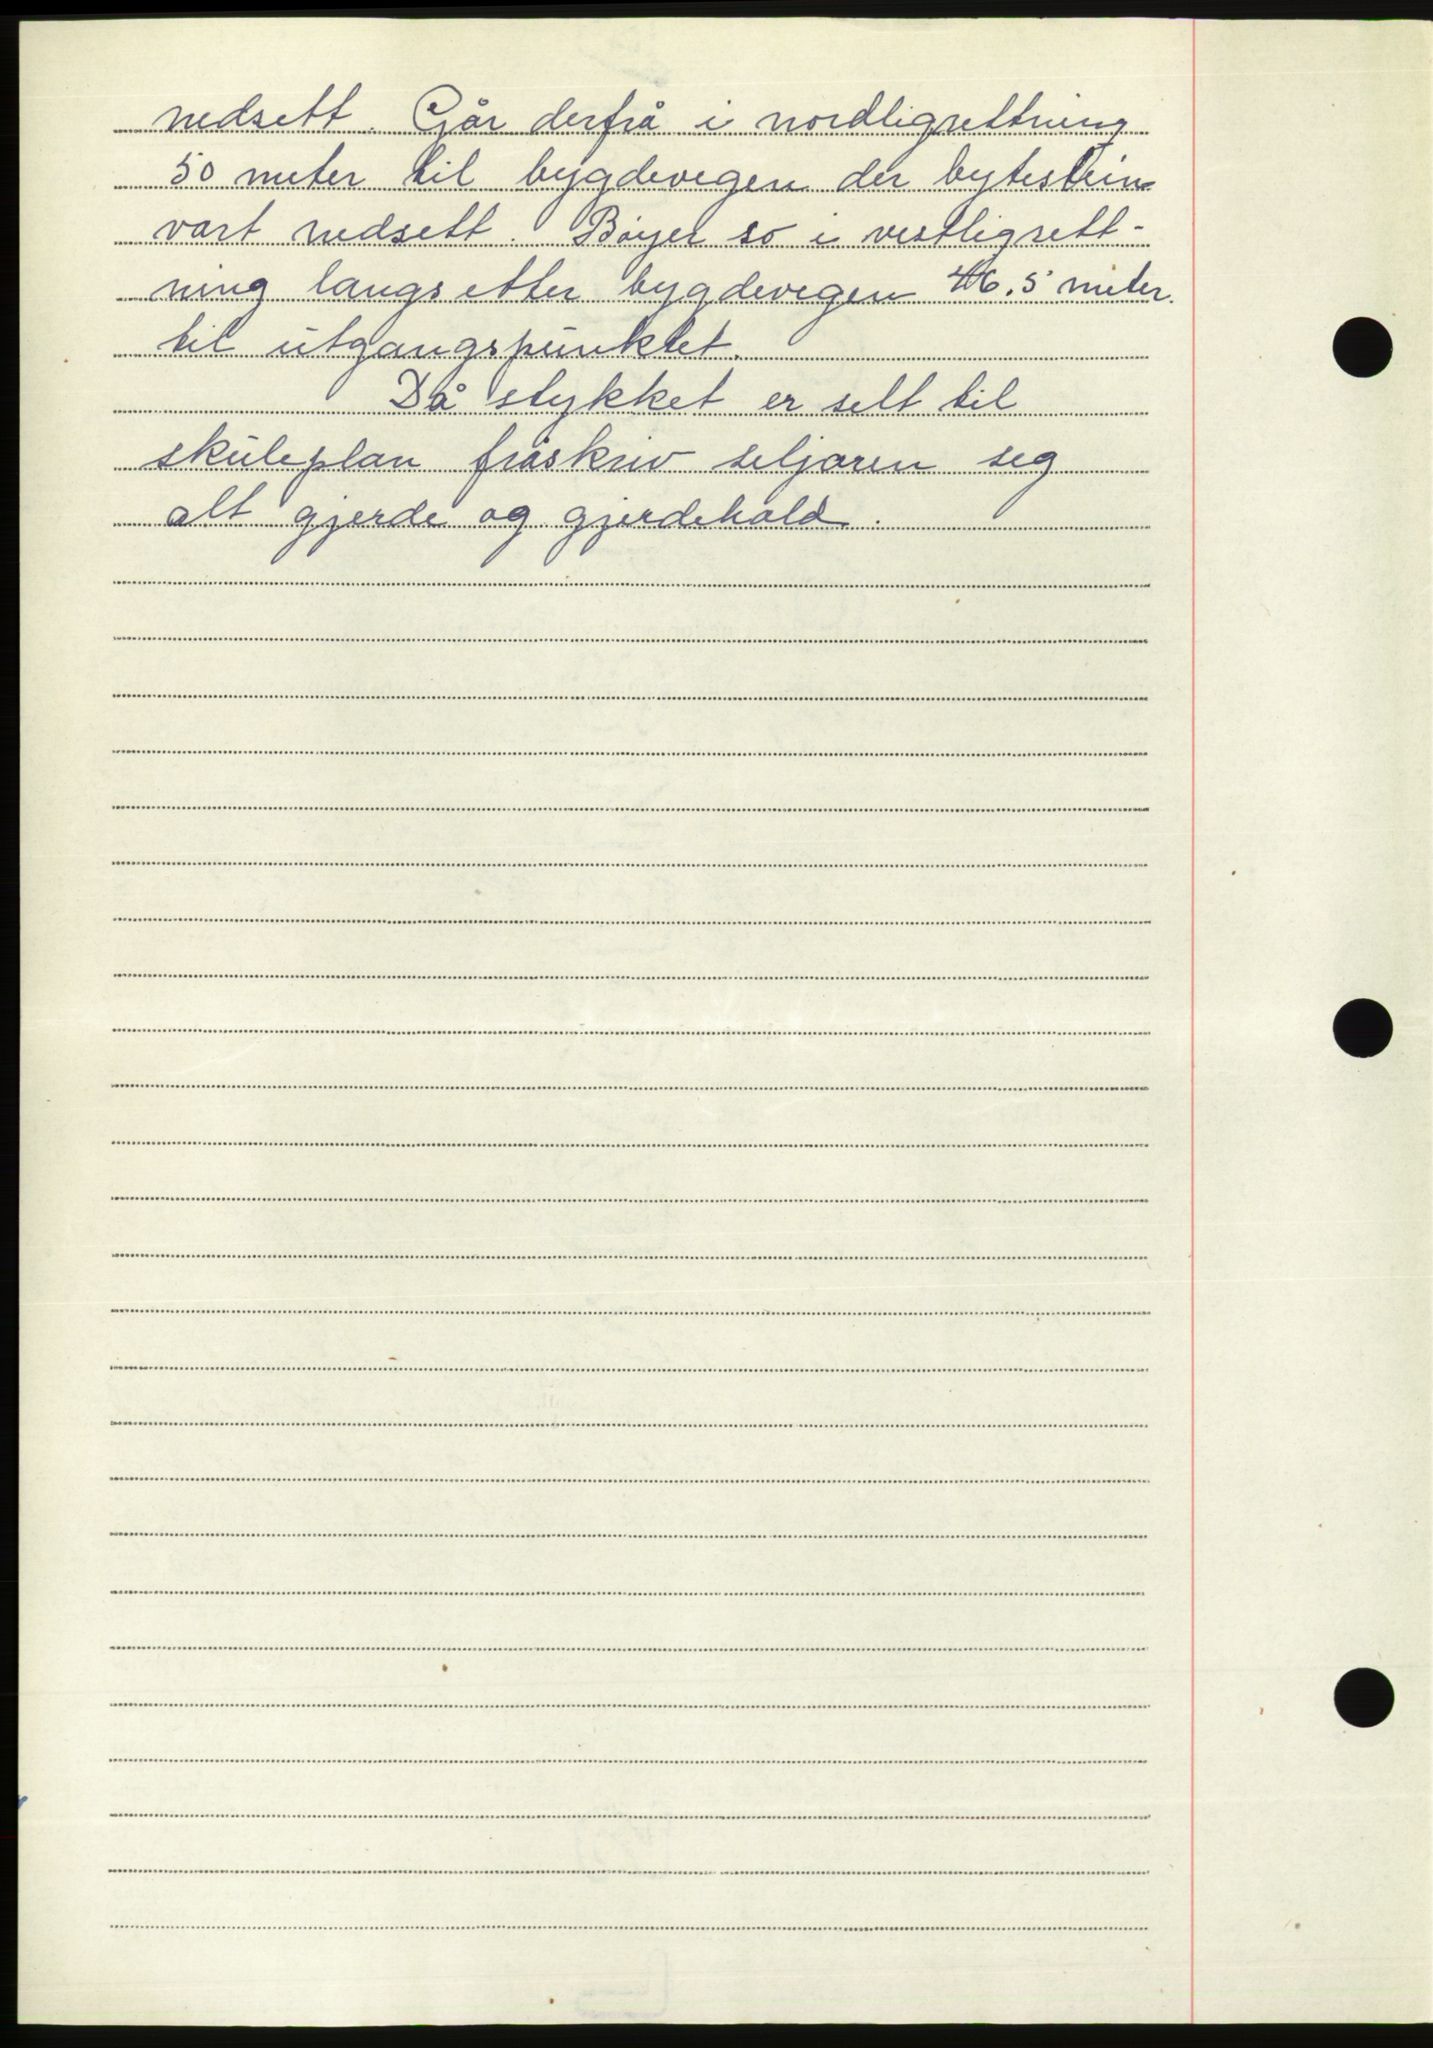 nedsett. Går derfrå i nordligrettning
50 meter til bygdevegen der bytestein
vart nedsett. Bøyer so i vestligrett-
ning langs etter bygdevegen 46.5 meter.
til utgangspunktet.
Då stykket er selt til
skuleplan fråskriv seljaren seg
alt gjerde og gjerdehald.